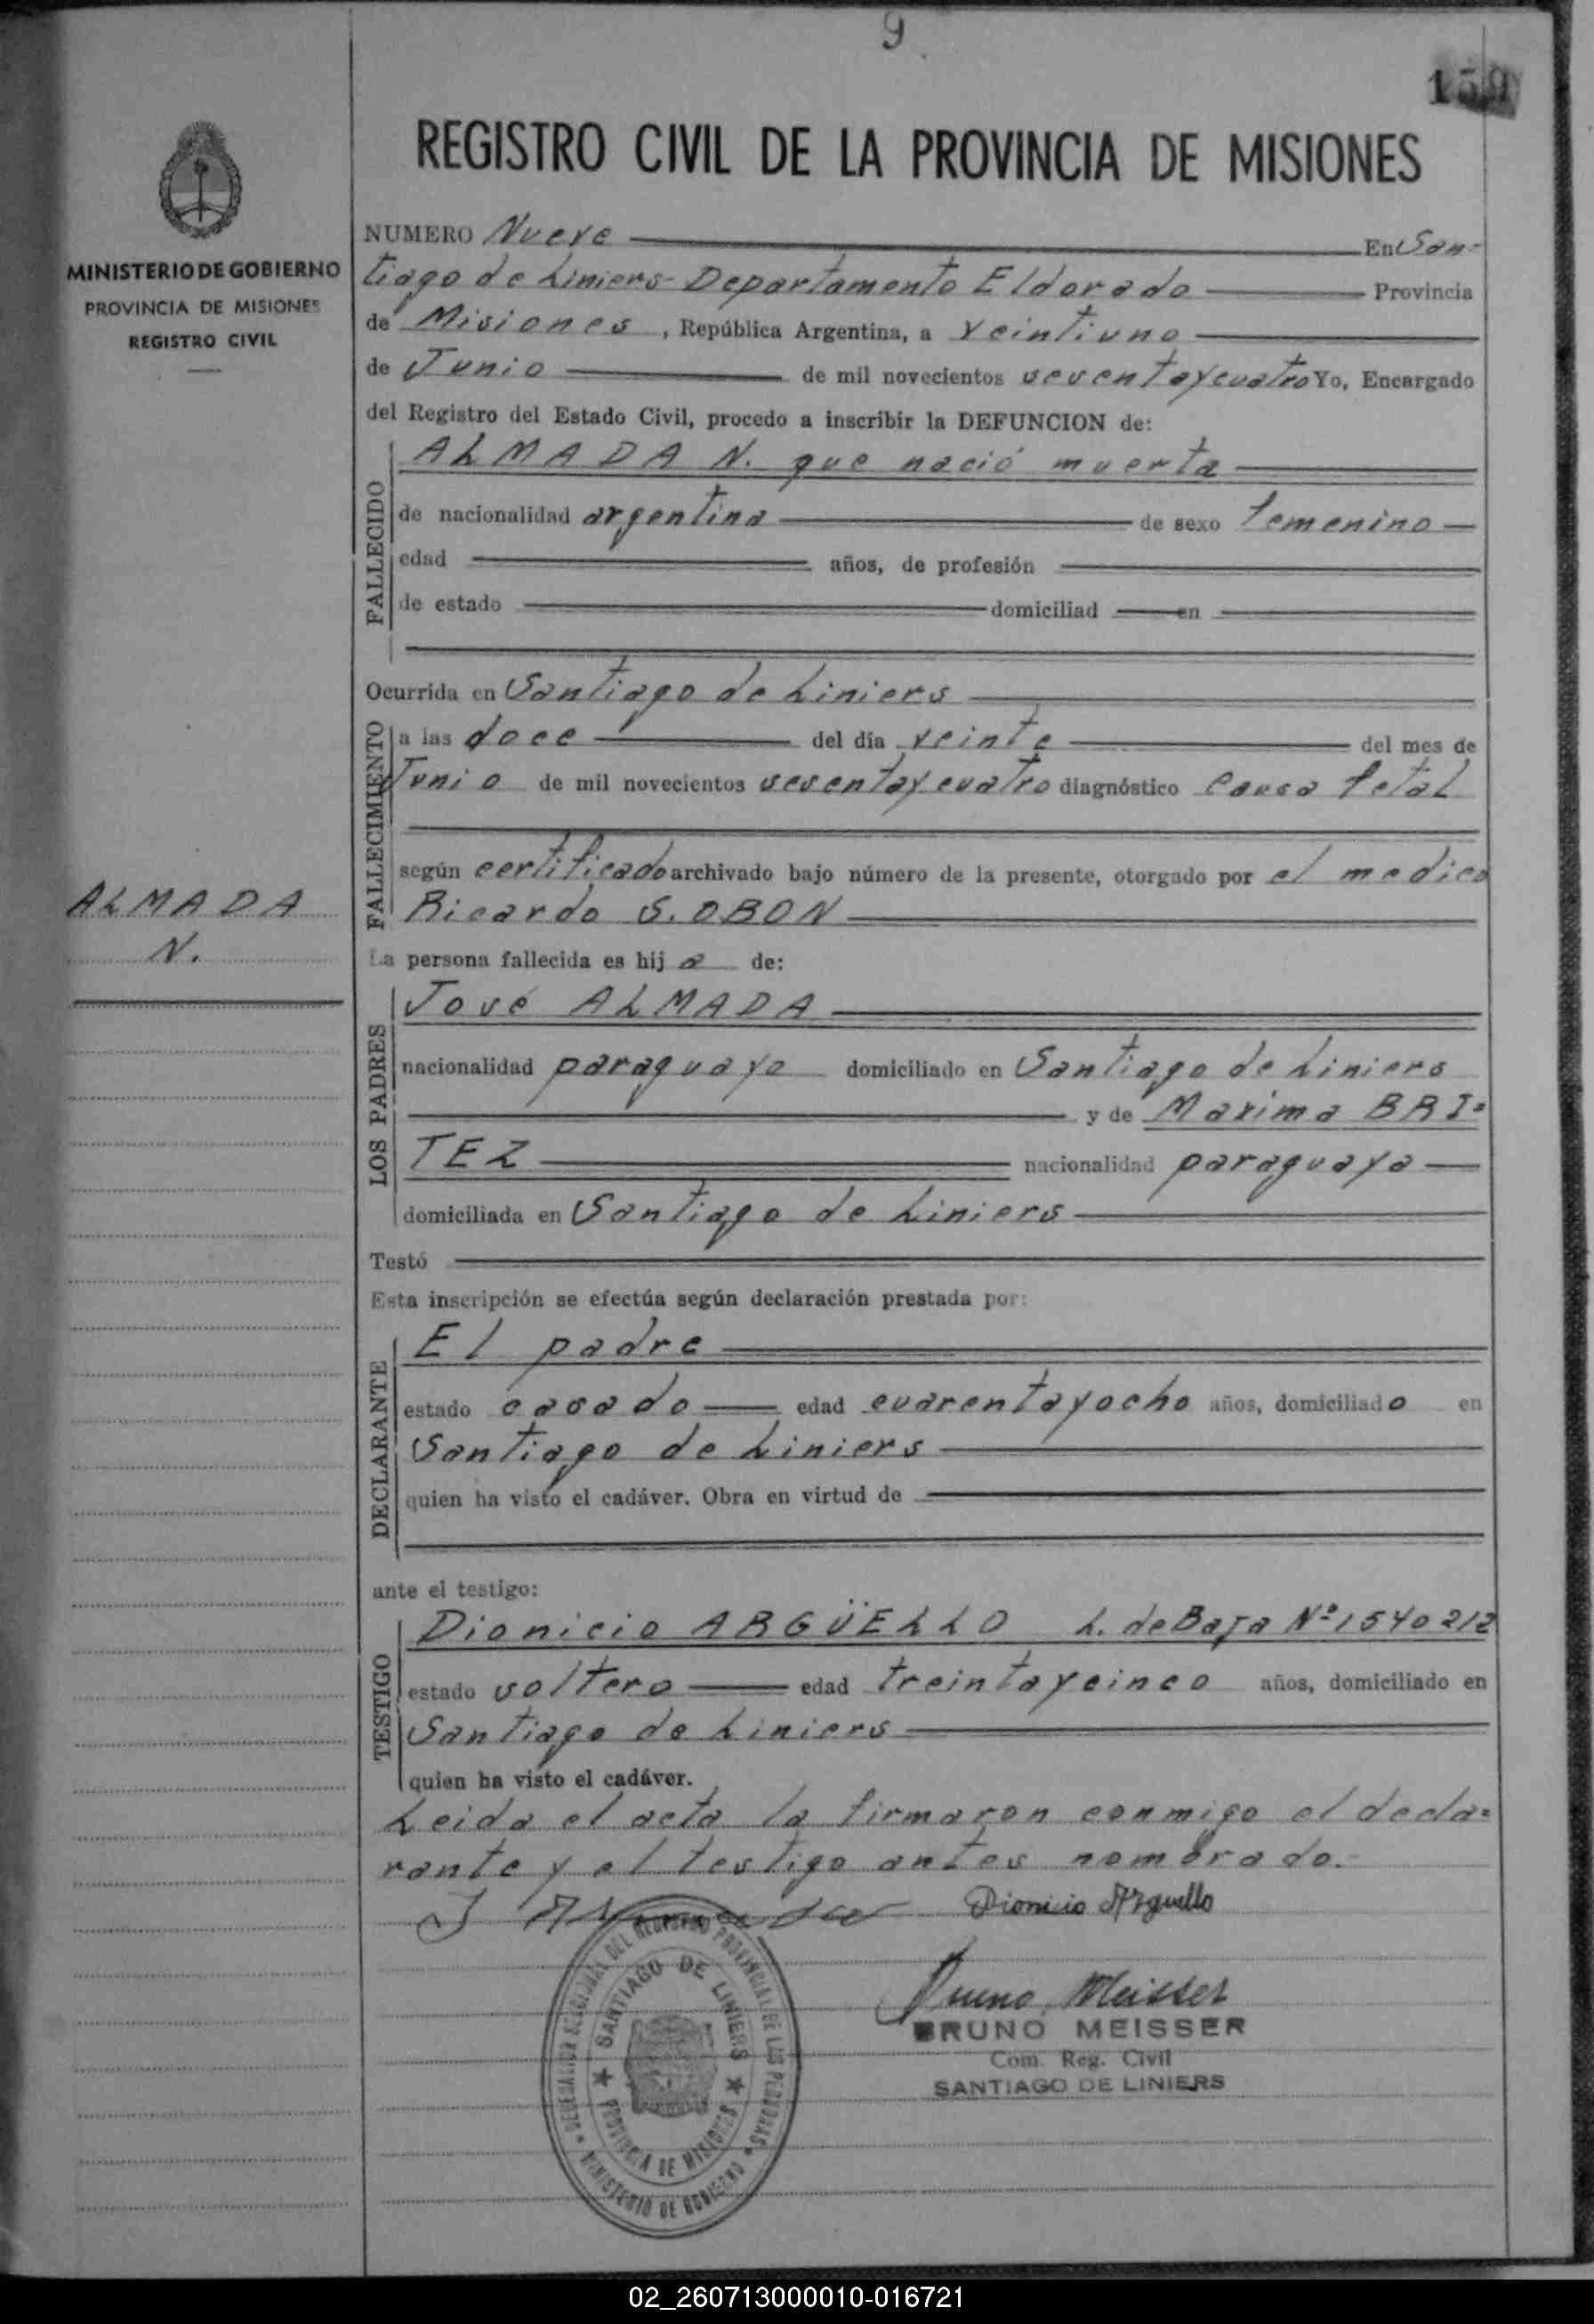 9
159
REGISTRO CIVIL DE LA PROVINCIA DE MISIONES
MINISTERIO DE GOBIERNO
PROVINCIA DE MISIONES
REGISTRO CIVIL
NUMERO Nueve En San-
tiago de Liniers- Departamento Eldorado Provincia
de Misiones, República Argentina, a veintiuno
de Junio de mil novecientos sesentaycuatro Yo, Encargado
del Registro del Estado Civil, procedo a inscribir la DEFUNCION de:
FALLECIDO
ALMADA N. que nació muerta
de nacionalidad argentina de sexo femenino
edad años, de profesión
de estado domiciliad en
Ocurrida en Santiago de Liniers
FALLECIMIENTO
a las doce del día veinte del mes de
Junio de mil novecientos sesentaycuatro diagnóstico Causa fetal
según certificado archivado bajo número de la presente, otorgado por el medico
Ricardo S. OBON
ALMADA
N.
La persona fallecida es hij a de:
LOS PADRES
José ALMADA
nacionalidad paraguayo domiciliado en Santiago de Liniers
y de Maxima BRI=
TEZ nacionalidad paraguaya
domiciliada en Santiago de Liniers
Testó
Esta inscripción se efectúa según declaración prestada por:
DECLARANTE
El padre
estado casado edad cuarentayocho años, domiciliado en
Santiago de Liniers
quien ha visto el cadáver. Obra en virtud de
ante el testigo:
TESTIGO
Dionicio ARGÜELLO L. de Baja Nº 1540212
estado soltero edad treintaycinco años, domiciliado en
Santiago de Liniers
quien ha visto el cadáver.
Leida el acta la firmaron conmigo el decla=
rante y el testigo antes nombrado.-
J Almada Dionicio Arguello
Bruno Meisser
BRUNO MEISSER
Com. Reg. Civil
SANTIAGO DE LINIERS
DEL REGISTRO PROVINCIAL DE LAS PERSONAS
SANTIAGO DE LINIERS
PROVINCIA DE MISIONES
MINISTERIO DE GOBIERNO
02_260713000010-016721